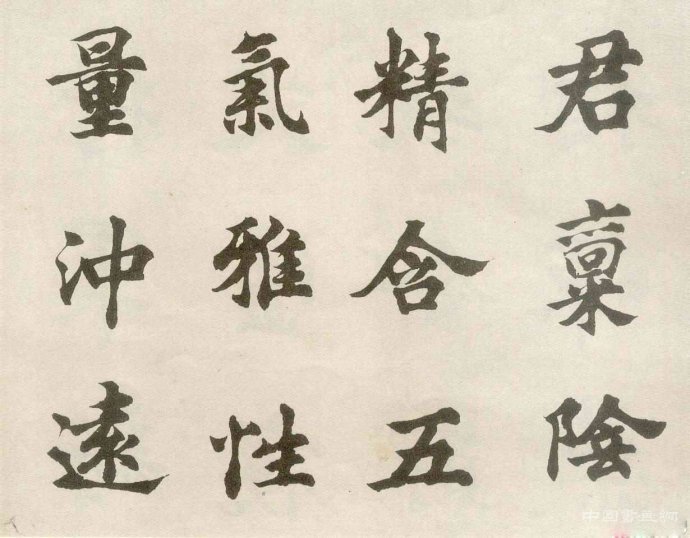 君稟陰
精含五
氣雅性
量沖遠
中国書画网